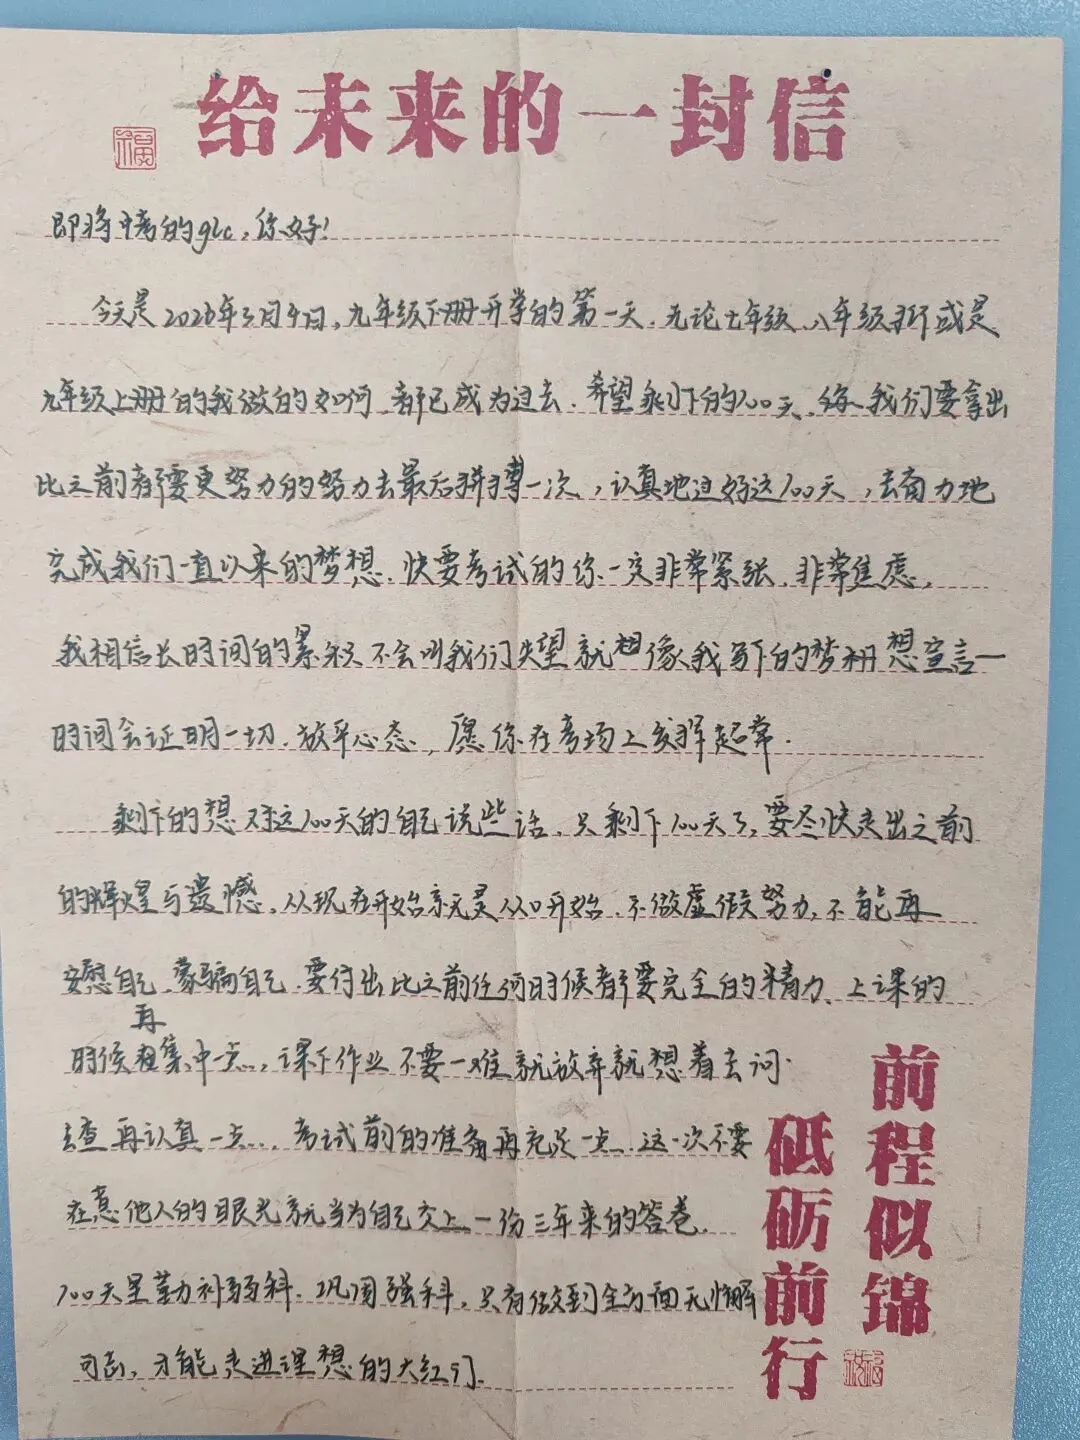 给未来的一封信
福
即将中考的glc，你好！
今天是2026年3月4日，九年级下册开学的第一天，无论七年级、八年级抑或是
九年级上册的我做的如何，都已成为过去，希望剩下的100天，我们要拿出
比之前都要更努力的努力去最后拼搏一次，认真地过好这100天，去奋力地
完成我们一直以来的梦想，快要考试的你一定非常紧张，非常焦虑，
我相信长时间的累积不会叫我们失望就想像我写下的梦想宣言一
时间会证明一切，放平心态，愿你在考场上发挥起常.
剩下的想对这100天的自己说些话，只剩下100天了，要尽快走出之前
的辉煌与遗憾，从现在开始就是从0开始，不做虚假努力，不能再
安慰自己、蒙骗自己，要付出比之前任何时候都要完全的精力、上课的
时候再集中一点，课下作业不要一难就放弃就想着去问.
去查再认真一点，考试前的准备再充足一点，这一次不要
在意他人的眼光就当为自己交上一份三年来的答卷.
100天里勤力补弱科、巩固强科，只有做到全方面无懈
可击，才能走进理想的大红门.
前程似锦
砥砺前行